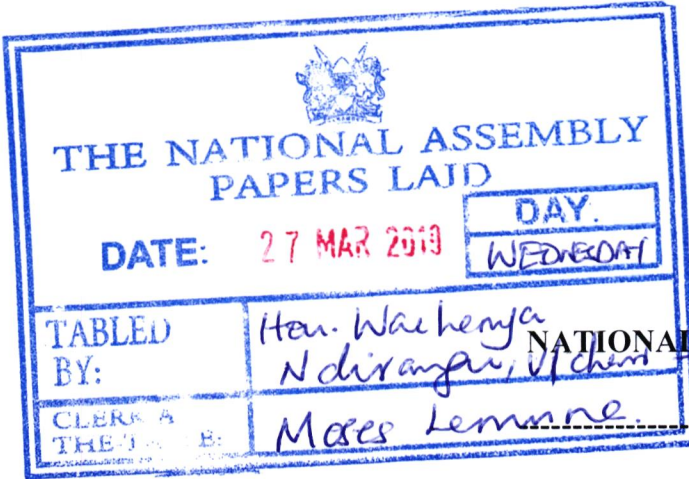 THE NATIONAL ASSEMBLY
PAPERS LAID
DATE: 27 MAR 2019
DAY.
WEDNESDAY
TABLED
BY:
Hon. Wachenya
NATIONAL
Ndirangu, V/chair
CLERK
THE
Moses Lemuna.